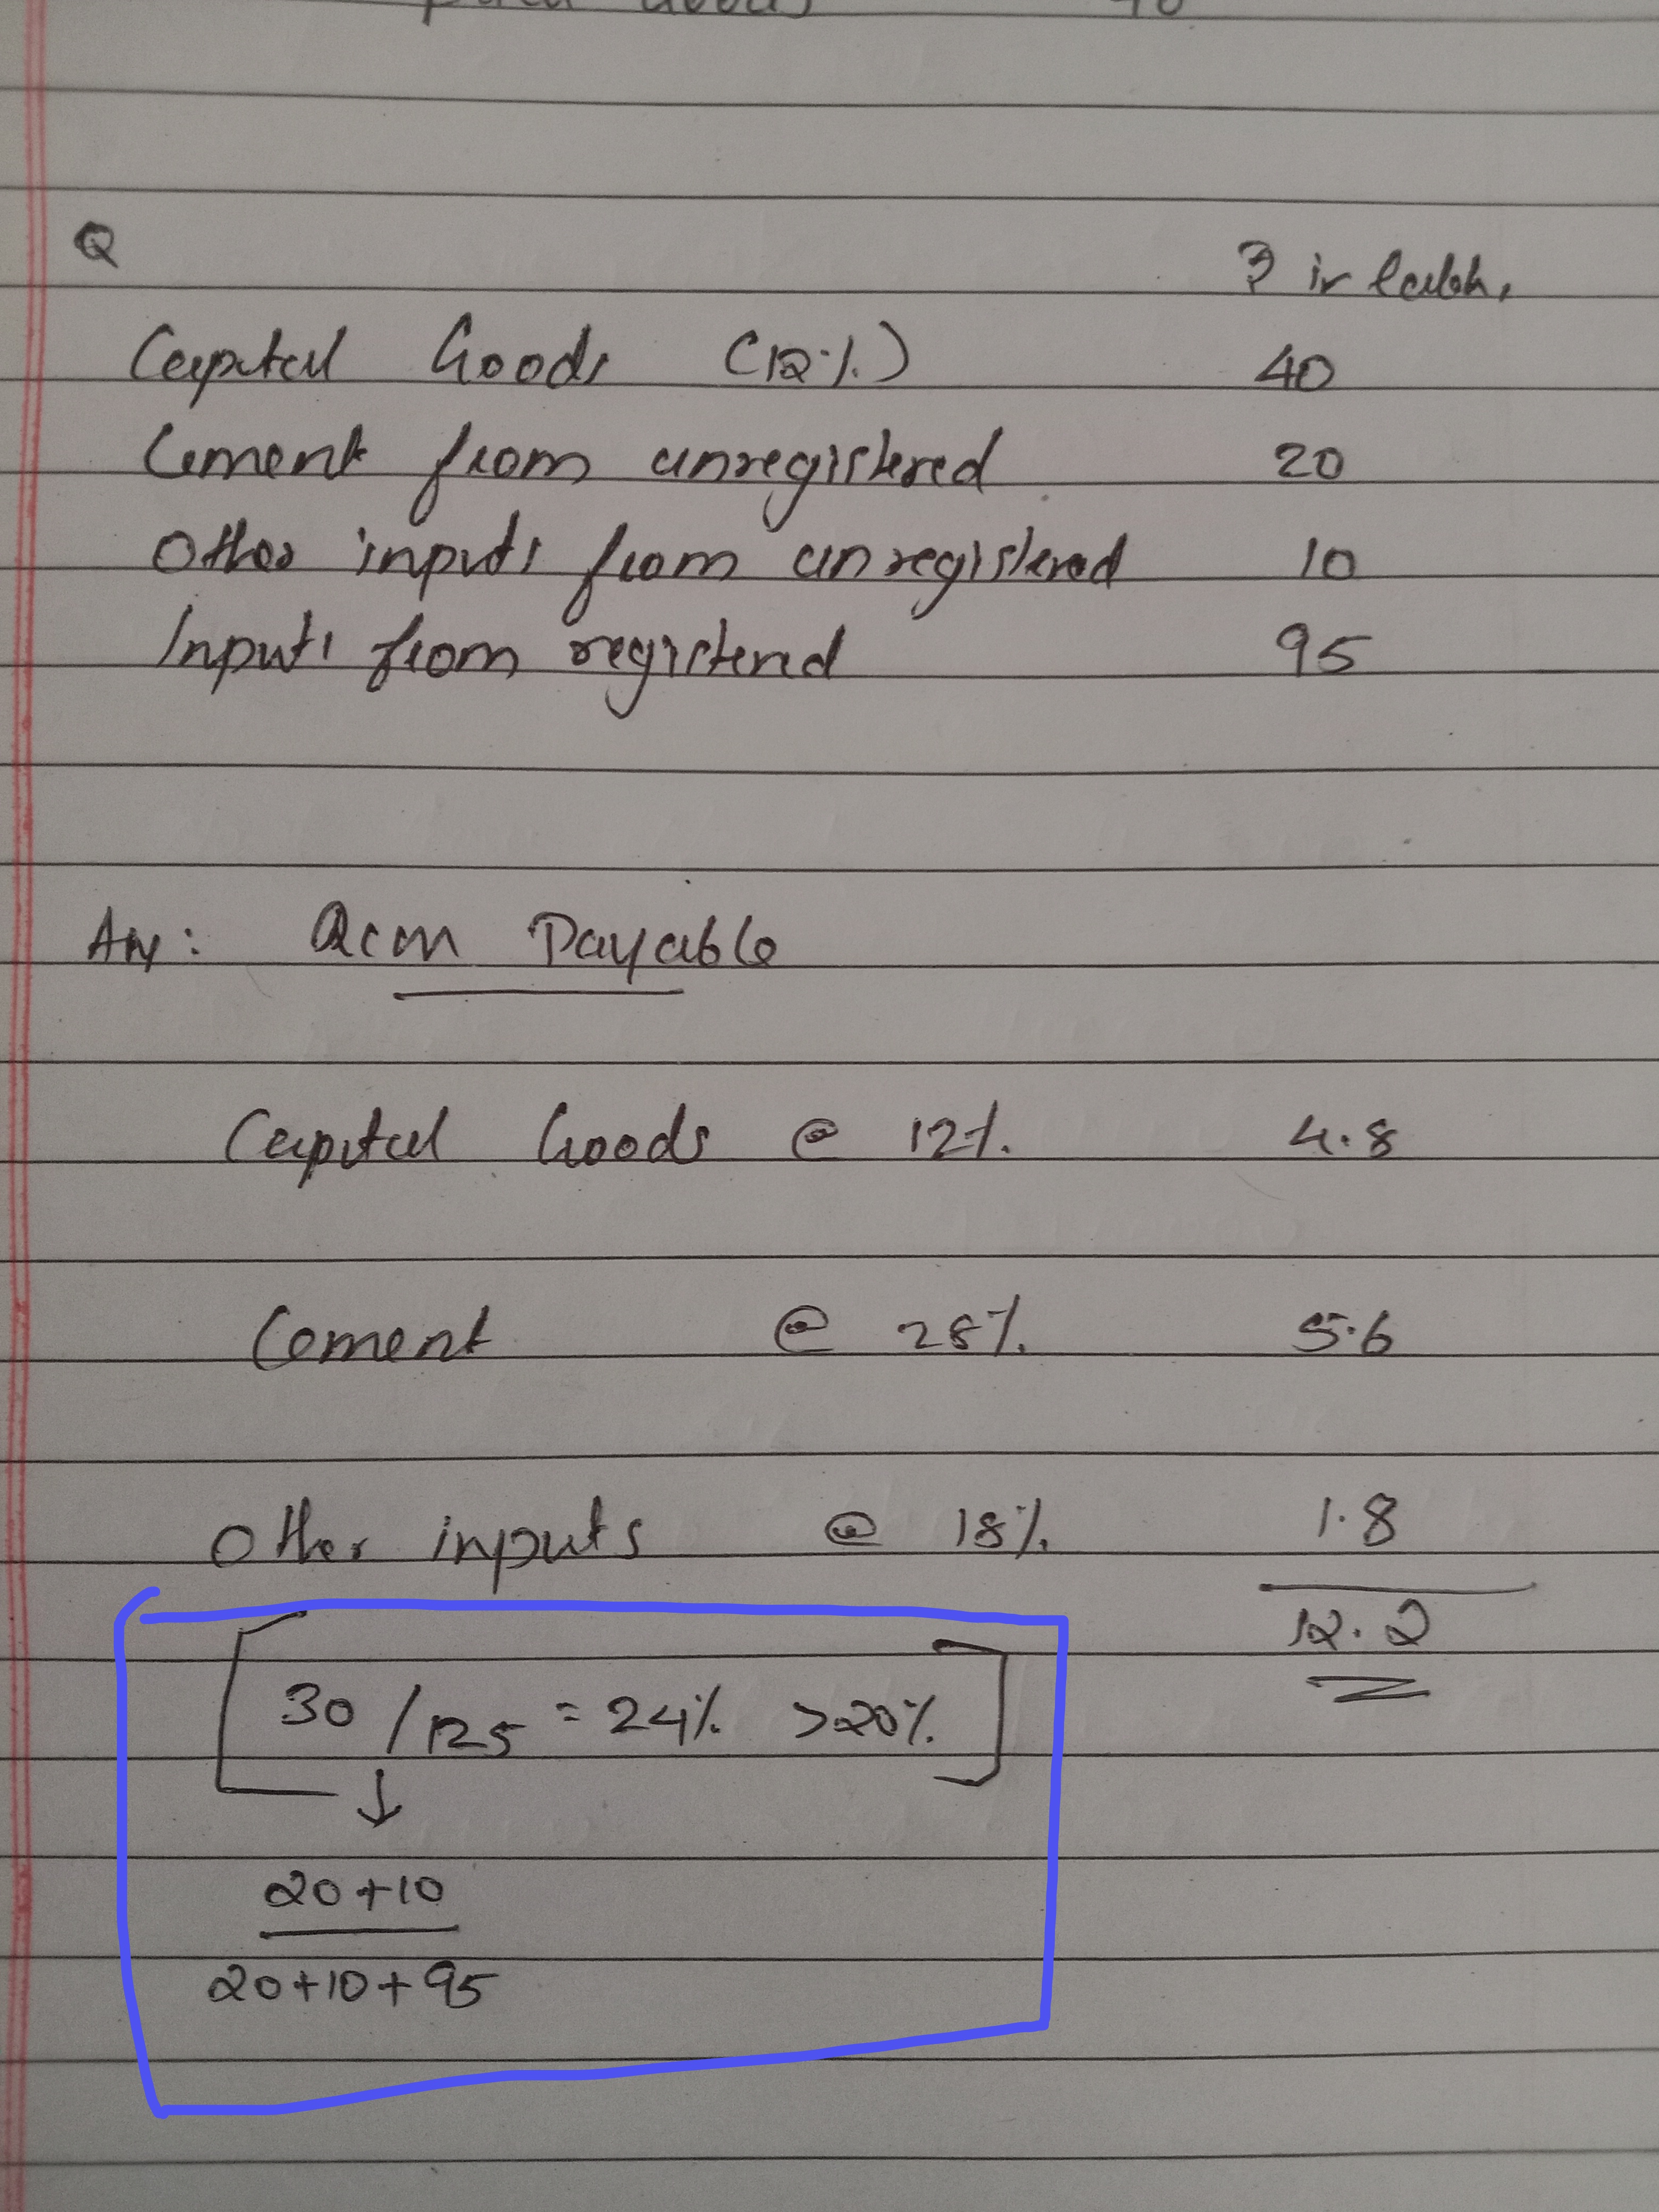 Q
₹ in lakh,
Capital Goods (12%) 40
Cement from unregistered 20
Other inputs from unregistered 10
Inputs from registered 95
Ans: RCM Payable
Capital Goods @ 12% 4.8
Cement @ 28% 5.6
Other inputs @ 18% 1.8
12.2
[30/125 = 24% >20%]
↓
20+10
20+10+95